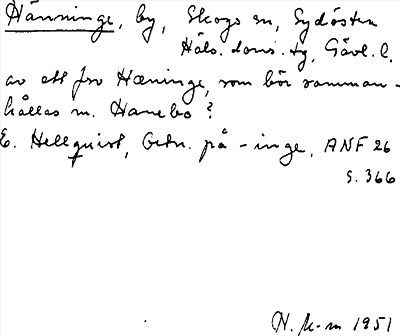 Hänninge, by, Skogs sn, Sydöstra
Häls. doms. tg, Gävl. l.
av ett fsv Hæninge, som bör samman-
hållas m. Hanebo?
E. Hellquist, Ortn. på -inge, ANF 26
s. 366
1951